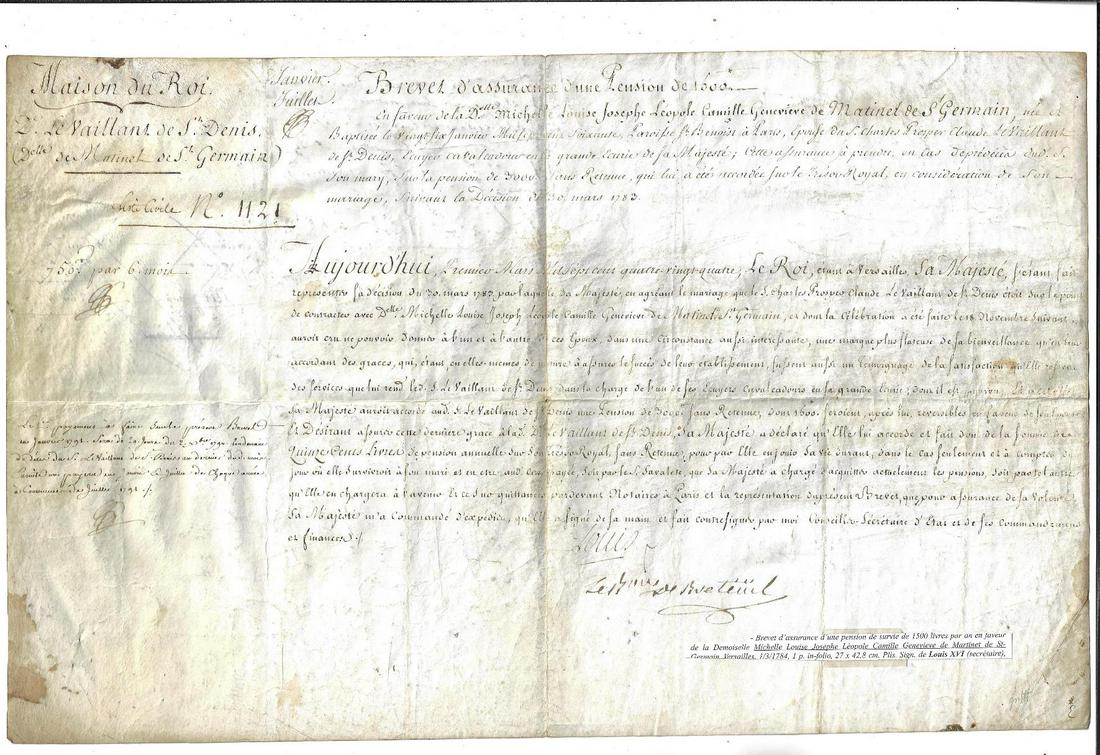 Maison du Roi.
D. Le Vaillant de St. Denis.
(Delle de Matinet de St. Germain)
Liste Civile N.o 1121
750 par 6. mois
Janvier.
Juillet.
Brevet d'assurance d'une Pension de 1500.
en faveur de la Delle Michelle Louise Josephe Léopole Camille Geneviève de Matinet de St Germain, née et
Baptisée le vingt six Janvier Mil sept cent soixante, Paroisse St Benoist à Paris, Epouse du S. Charles Prosper Claude Le Vaillant
de St Denis, Ecuyer cavalcadour en grande Ecurie de sa Majesté; Cette assurance à prendre, en cas de prédécès dud. S.
Son mary, sur la pension de 3000 sans Retenue, qui lui a été accordée sur le Trésor Royal, en considération de Son
mariage, Suivant la Décision du 30. mars 1783.
Aujourd'hui, Premier Mars Mil sept cent quatre vingt quatre, Le Roi, étant à Versailles, Sa Majesté, s'étant fait
représenter sa décision du 30. mars 1783, par laquelle Sa Majesté, en agréant le mariage que le S. Charles Prosper Claude Le Vaillant de St Denis étoit sur le point
de contracter avec Delle Michelle Louise Joseph Léopole Camille Geneviève de Matinet St Germain, et dont la Célébration a été faite le 18 Novembre suivant,
auroit cru ne pouvoir donner à l'un et à l'autre de ces Epoux, dans une circonstance aussi intéressante, une marque plus flateuse de sa bienveillance qu'en leur
accordant des graces, qui, étant en elles-mêmes de nature à assurer le succès de leur établissement, fussent aussi un témoignage de la satisfaction qu'Elle
des services que lui rend led. S. Le Vaillant de St Denis dans la charge de l'un de ses Ecuyers Cavalcadours en sa grande Ecurie; dont il est
Sa Majesté auroit accordé aud. S. Le Vaillant de St Denis une Pension de 3000 sans Retenue, dont 1500. seroient, après lui, réversibles en faveur de
Et Désirant assurer cette dernière grace à lad. D. Le Vaillant de St Denis, Sa Majesté a déclaré qu'Elle lui accorde et fait don de la somme de
Quinze Cents Livres de pension annuelle sur son Trésor Royal, sans Retenue, pour par Elle en jouir sa vie durant, dans le cas seulement et à compter du
jour où elle survivroit à son mari et en être aud. cas payée, soit par le S. Savalete, que Sa Majesté a chargé d'acquitter actuellement les pensions, soit par tel autre
qu'Elle en chargera à l'avenir. Et ce sur quittances pardevant Notaires à Paris et la représentation du présent Brevet, que pour assurance de sa Volonté,
Sa Majesté m'a Commandé d'expédier, qu'Elle a signé de sa main et fait contresigner par moi Conseiller Secrétaire d'Etat et de ses Commandemens
et finances ./.
Louis
Le Bon De Breteüil
- Brevet d'assurance d'une pension de survie de 1500 livres par an en faveur
de la Demoiselle Michelle Louise Josephe Léopole Camille Geneviève de Martinet de St-
Germain. Versailles, 1/3/1784, 1 p. in-folio, 27 x 42,8 cm. Plis. Sign. de Louis XVI (secrétaire),